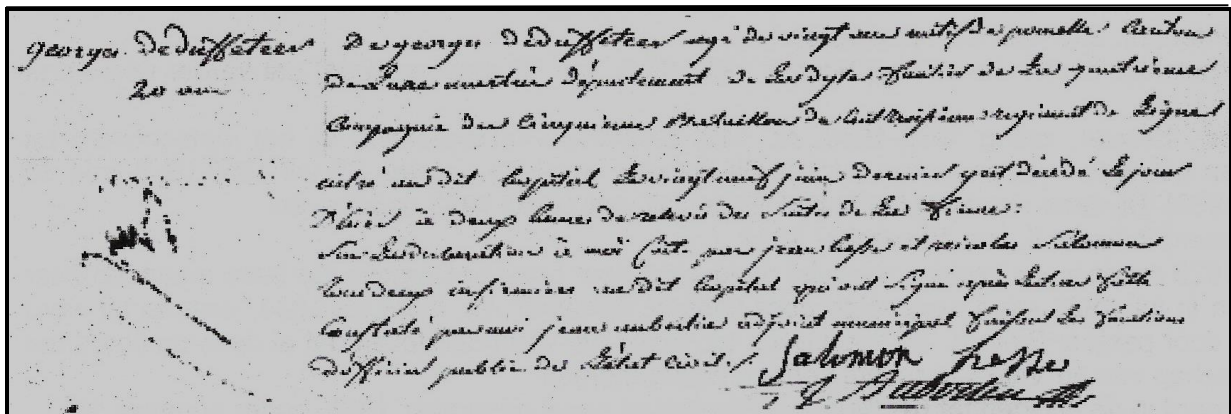 georges Dedeffeteer De georges Dedeffeteer agé de vingt ans natif de pamelle Canton
20 ans département de la dyle fusilier de la quatrieme
Compagnie du Cinquieme Bataillon du Cent troisieme regiment de Ligne
entré audit hopital le vingt neuf juin dernier y est décédé le jour
d'hier à deux heures de relevée des suites de la fievre:
Sur la declaration à moi faite par jean hesse et nicolas Salomon
tous deux infirmiers audit hopital qui ont signé après lecture faite
Constaté par moi jean adjoint municipal faisant les fonctions
d'officier public de l'état civil./. Salomon hesse